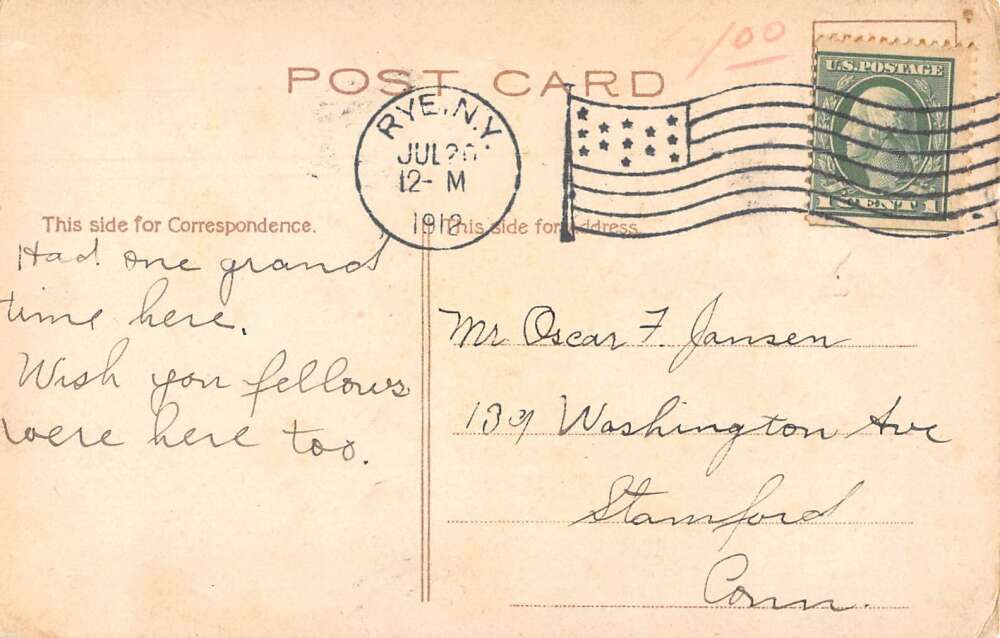 1.00
POST CARD
U.S. POSTAGE
1 CENT 1
RYE, N.Y.
JUL 20
12- M
1912
This side for Correspondence.
This side for Address.
Had one grand
time here.
Wish you fellows
were here too.
Mr Oscar F. Jansen
139 Washington Ave
Stamford
Conn.